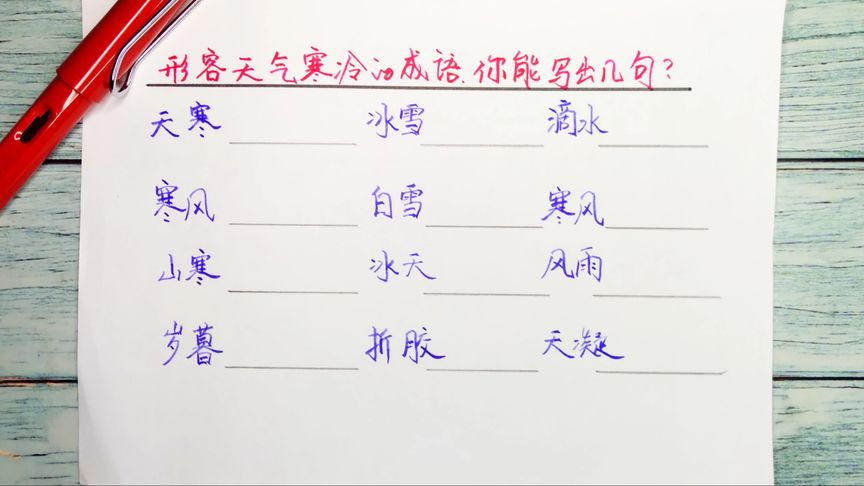 形容天气寒冷的成语,你能写出几句?
天寒 冰雪 滴水
寒风 白雪 寒风
山寒 冰天 风雨
岁暮 折胶 天凝